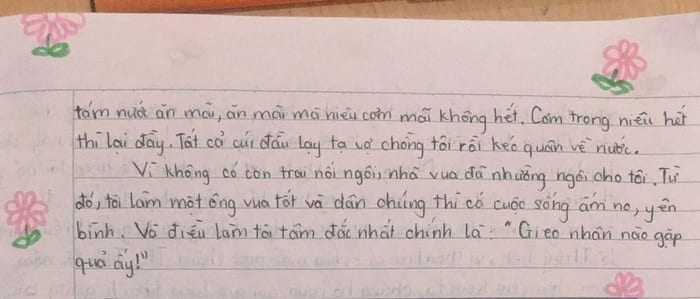 tấm nuớt ăn mãi, ăn mãi mà niêu cơm mãi không hết. Cơm trong niêu hết
thì lại đầy. Tất cả cúi đầu lạy tạ vợ chồng tôi rồi kéo quân về nước.
Vì không có con trai nối ngôi, nhà vua đã nhường ngôi cho tôi. Từ
đó, tôi làm một ông vua tốt và dân chúng thì có cuộc sống ấm no, yên
bình. Và điều làm tôi tâm đắc nhất chính là: "Gieo nhân nào gặp
quả ấy!"